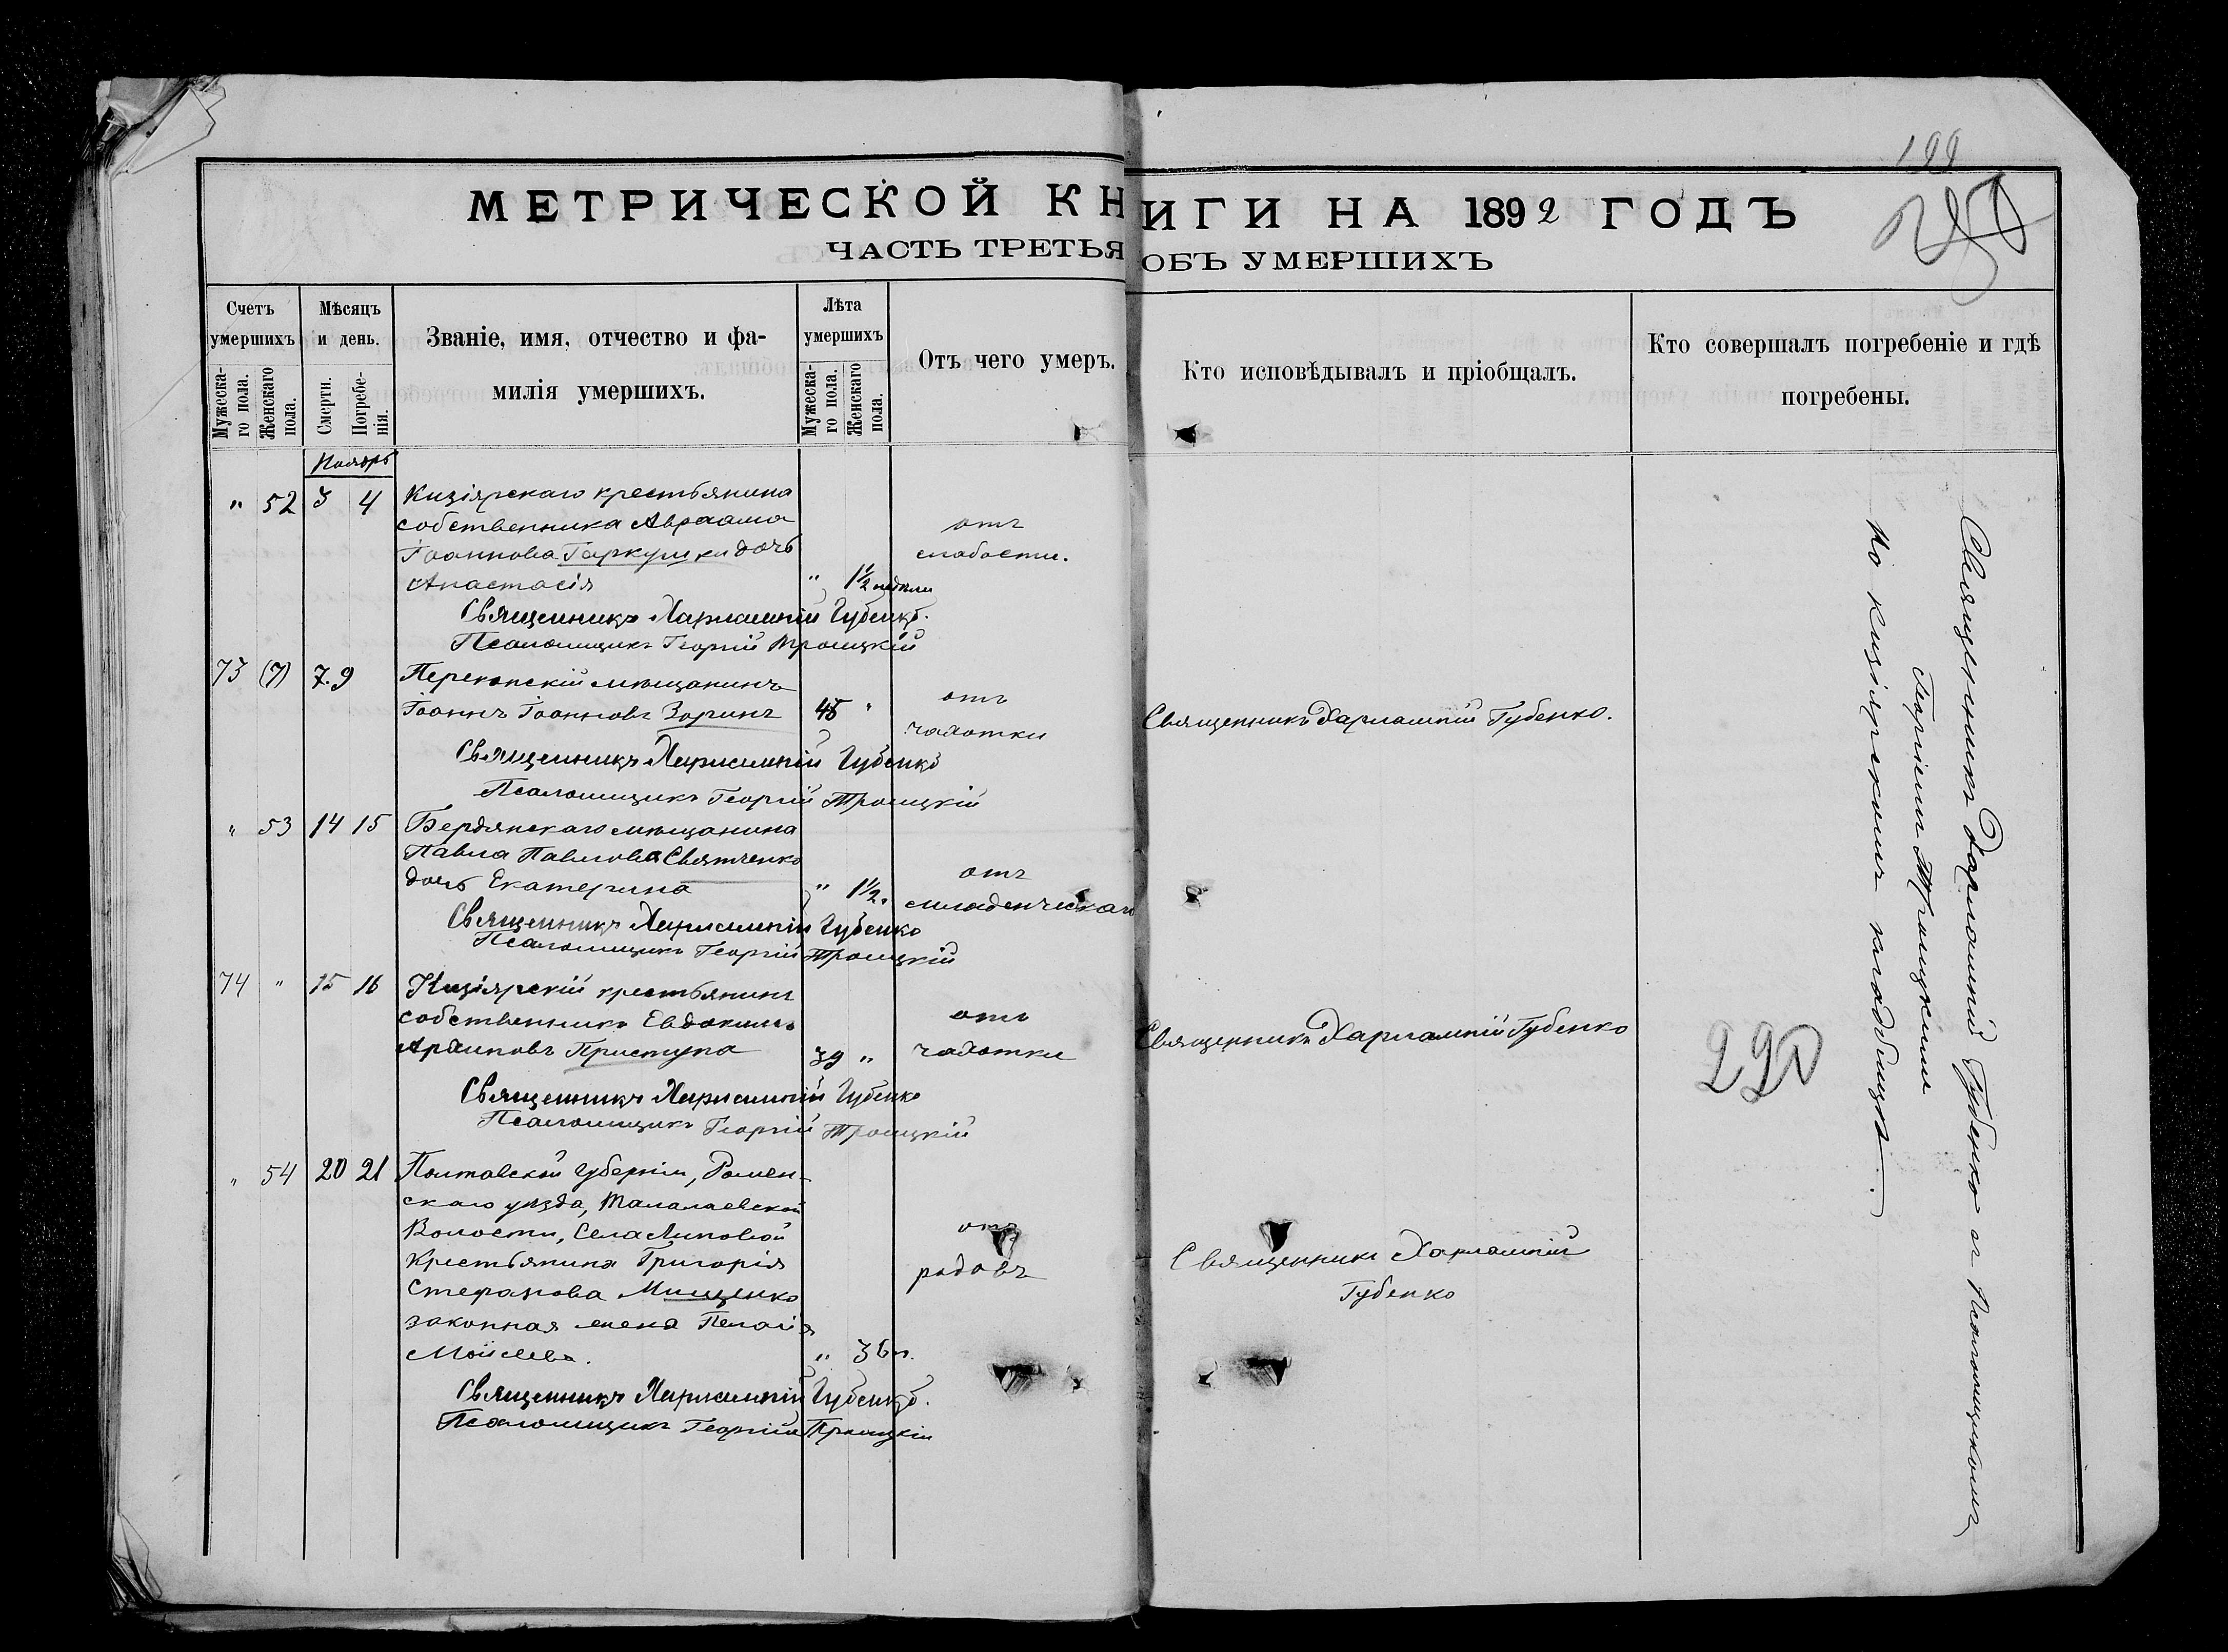 199
МЕТРИЧЕСКОЙ КНИГИ НА 1892 ГОДЪ
ЧАСТЬ ТРЕТЬЯ ОБЪ УМЕРШИХЪ
Счетъ умершихъ
Мужеска-го пола.
Женскаго пола.
Мѣсяцъ и день.
Смерти.
Погребе-нія.
Званіе, имя, отчество и фа-
милія умершихъ.
Лѣта умершихъ
Мужеска-го пола.
Женскаго пола.
Отъ чего умеръ.
Кто исповѣдывалъ и пріобщалъ.
Кто совершалъ погребеніе и гдѣ
погребены.
Ноябрь
" 52 3 4 Кизіярскаго крестьянина
собственника Авраама отъ
Іоаннова Гаркуши дочь слабости.
Анастасія " 1½ недѣли
Священникъ Харлампій Губенко.
Псаломщикъ Георгій Троицкій
73 (7) 7. 9 Перекопскій мѣщанинъ отъ
Іоаннъ Іоанновъ Зоринъ 45 " чахотки Священникъ Харлампій Губенко.
Священникъ Харлампій Губенко
Псаломщикъ Георгій Троицкій
" 53 14 15 Бердянскаго мѣщанина
Павла Павлова Святченко отъ
дочь Екатерина " 1½. младенческаго
Священникъ Харлампій Губенко
Псаломщикъ Георгій Троицкій
74 " 15 16 Кизіярскій крестьянинъ
собственникъ Евдокимъ отъ
Архиповъ Приступа 39 " чахотки Священникъ Харлампій Губенко
Священникъ Харлампій Губенко
Псаломщикъ Георгій Троицкій
" 54 20 21 Полтавской губерніи, Ромен-
скаго уѣзда, Талалаевской
Волости, Села Липовой отъ
Крестьянина Григорія родовъ Священникъ Харлампій
Стефанова Мищенко Губенко
законная жена Пелагія
Моисеева. " 36 л.
Священникъ Харлампій Губенко.
Псаломщикъ Георгій Троицкій
Священникъ Харлампій Губенко съ Псаломщикомъ
Георгіемъ Троицкимъ
На Кизіярскомъ кладбищѣ.
290